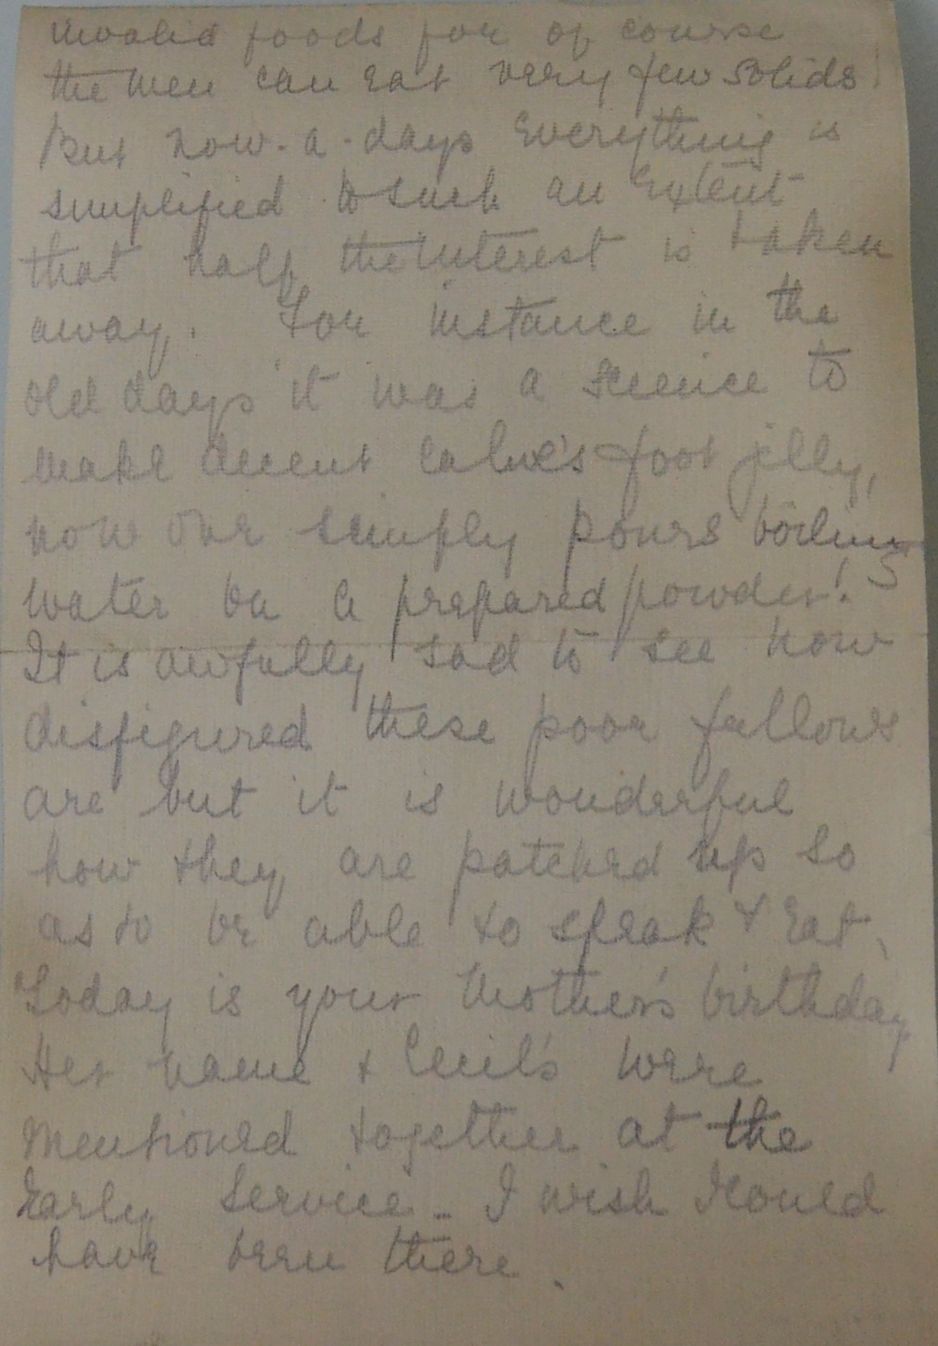 invalid foods for of course
the men can eat very few solids!
But now-a-days Everything is
simplified to such an Extent
that half the interest is taken
away. For instance in the
old days it was a science to
make decent calve's foot jelly,
now one simply pours boiling
water on a prepared powder!
It is awfully sad to see how
disfigured these poor fellows
are but it is wonderful
how they are patched up so
as to be able to speak & Eat.
Today is your Mother's birthday
Her name & Cecil's were
mentioned together at the
Early Service - I wish I could
have been there.